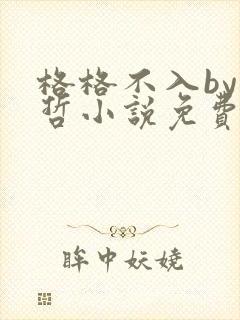 格格不入by
哲小說免費
眸中妖嬈